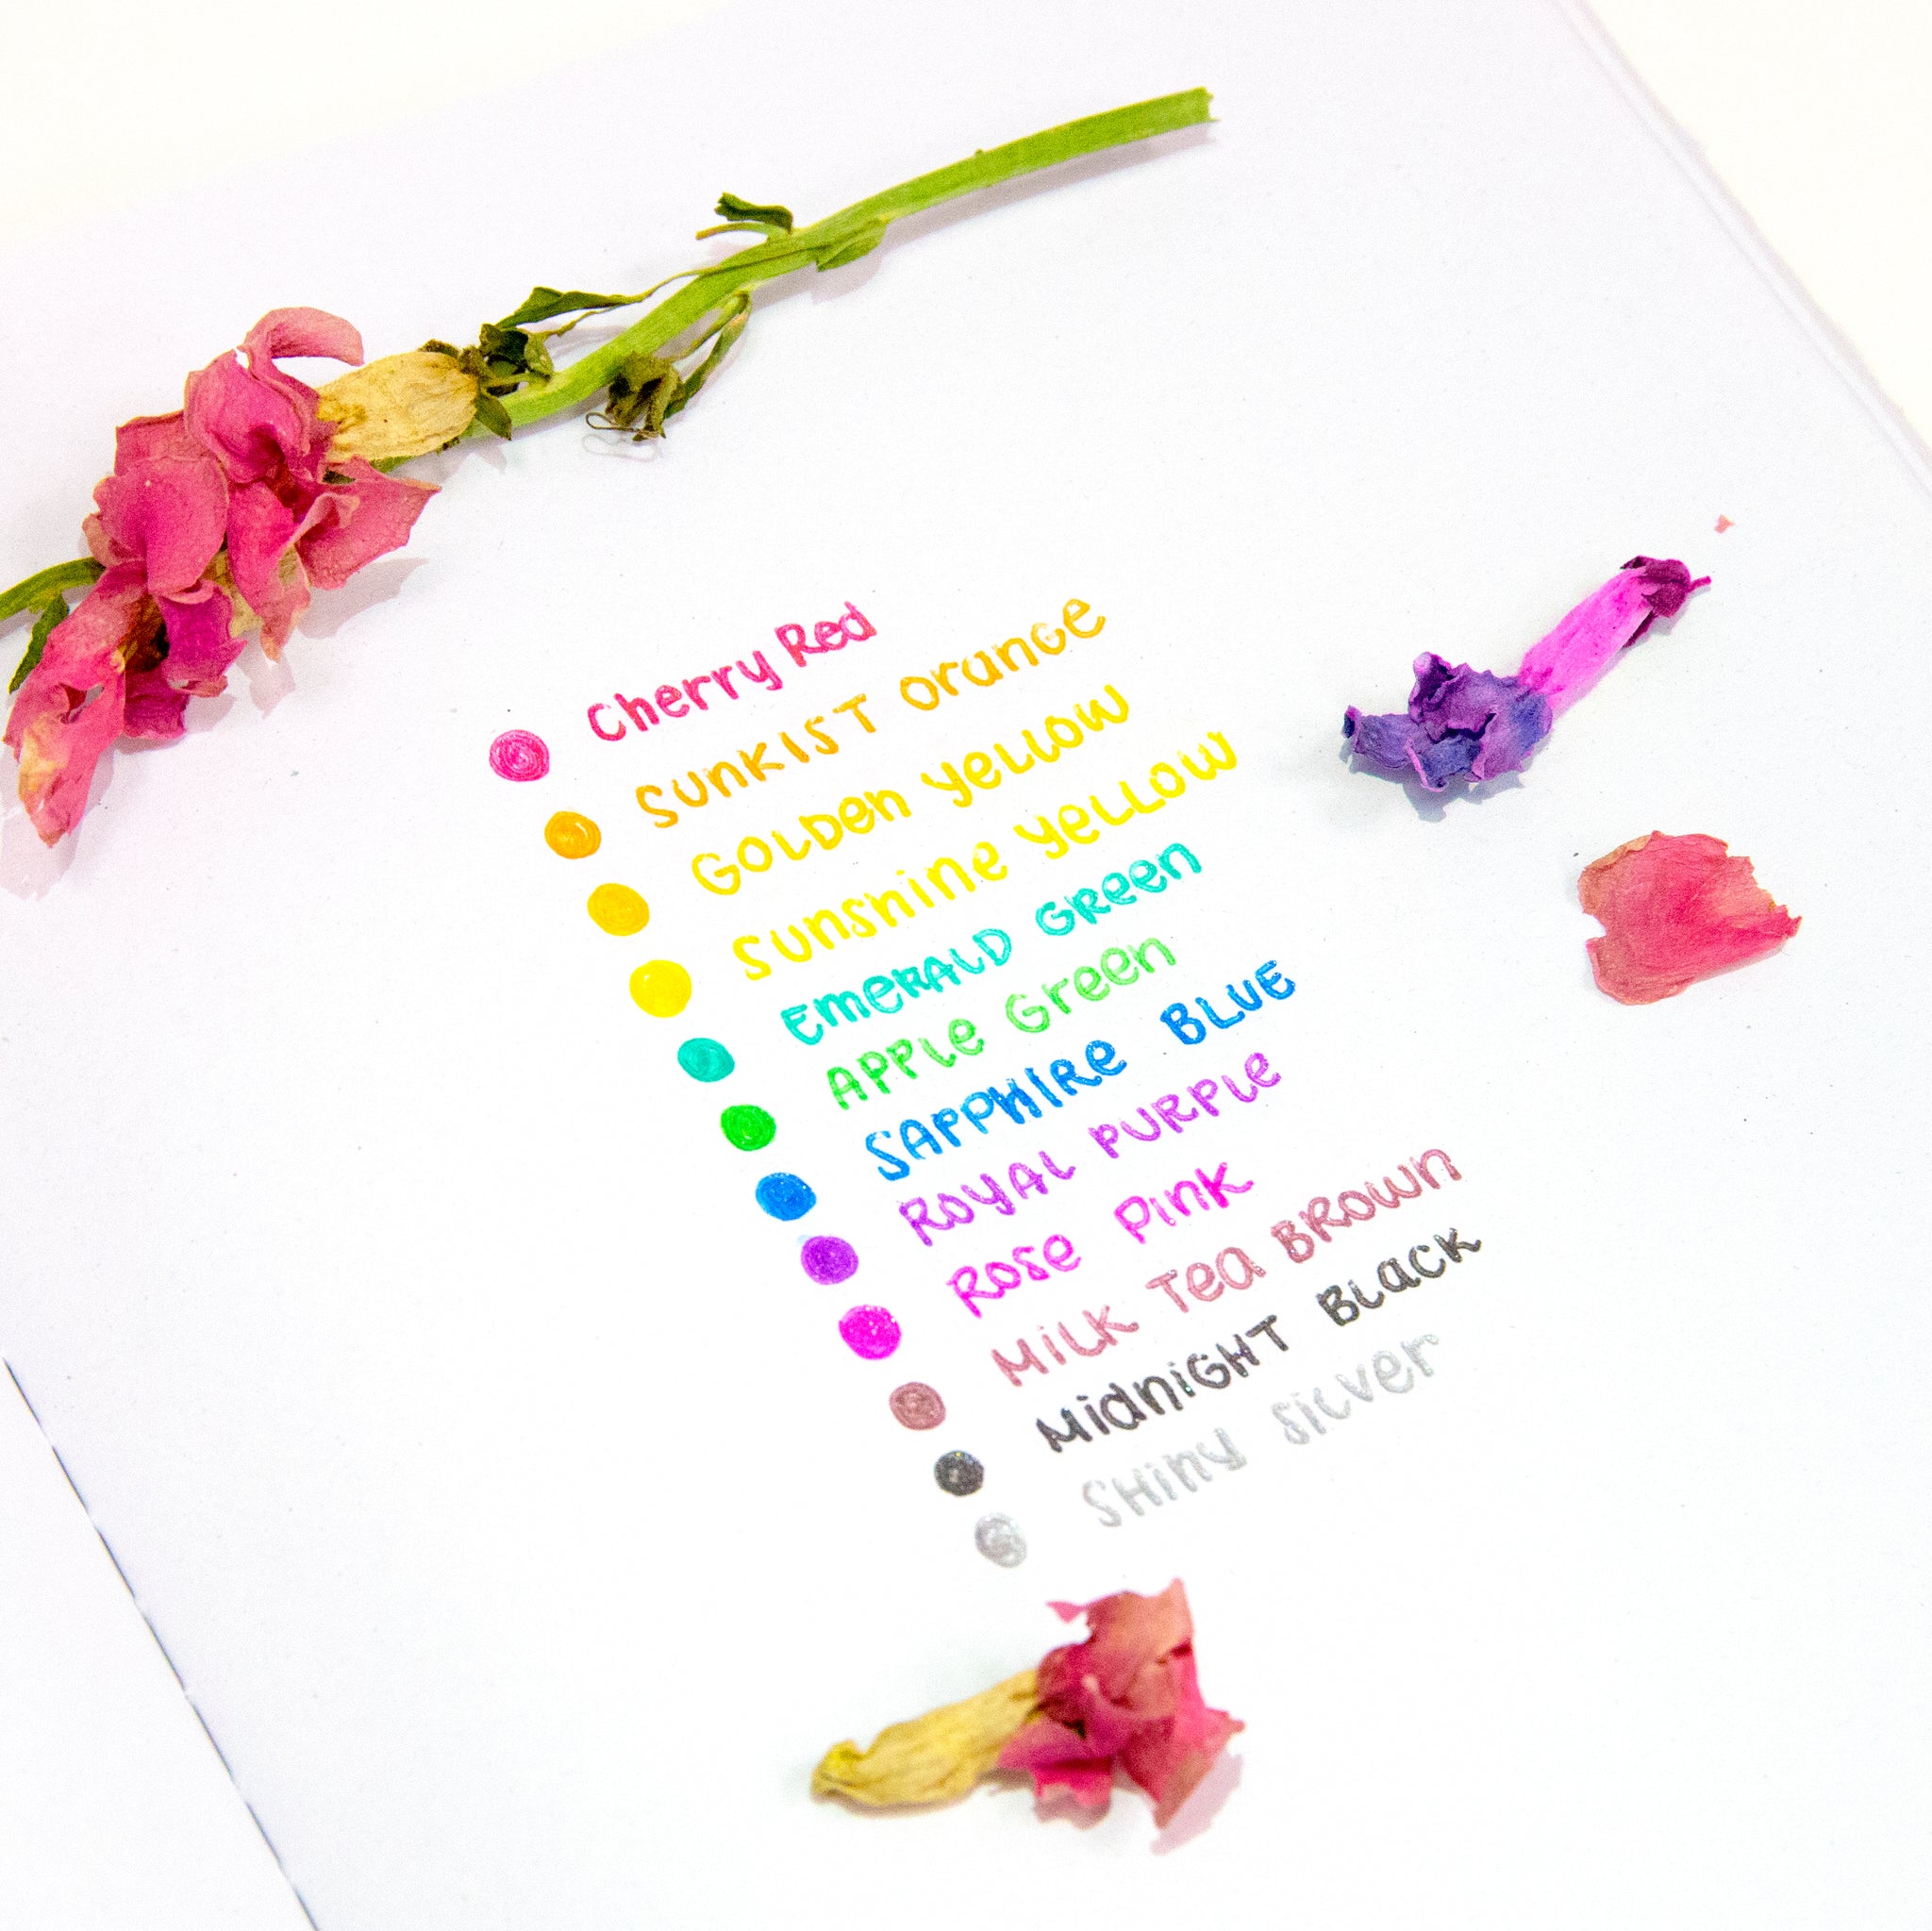 Cherry Red
SUNKIST Orange
GOLDEN YELLOW
Sunshine YELLOW
EMERALD GReen
APPLE Green
SAPPHIRE BLUE
ROYAL PURPLE
ROSE PINK
MILK Tea BROWN
MidNIGHT BLACK
SHiny Silver